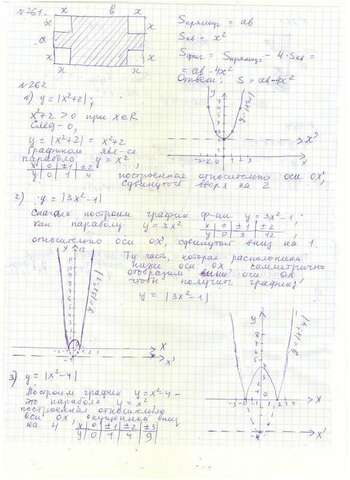 № 261.
x b x
a
x x
x x
S прямоуг = ab
Sкв = x²
Sфиг = Sпрямоуг - 4·Sкв =
= ab - 4x²
Ответ: S = ab-4x²
№ 262
1) y = |x²+2| ;
x²+2 > 0 при x∈R
След-о,
y = |x²+2| = x²+2
Графиком явл-ся
парабола y = x²
x | 0 | ±1 | ±2
y | 0 | 1 | 4
, построенная относительно оси ox',
сдвинутая вверх на 2
2) y = |3x²-1|
Сначала построим график ф-ии y = 3x²-1,
как параболу y = 3x²
x | 0 | ±1 | ±2
y | 0 | 3 | 12
относительно оси ox', сдвинутой вниз на 1.
Ту часть, которая расположена
ниже оси ox симметрично
отобразим выше оси ox
чтобы получить график
y = |3x²-1|
3) y = |x²-4|
Построим график y = x²-4 -
это парабола y = x²
построенная относительно
оси ox', опущенная вниз
на 4
x | 0 | ±1 | ±2 | ±3
y | 0 | 1 | 4 | 9